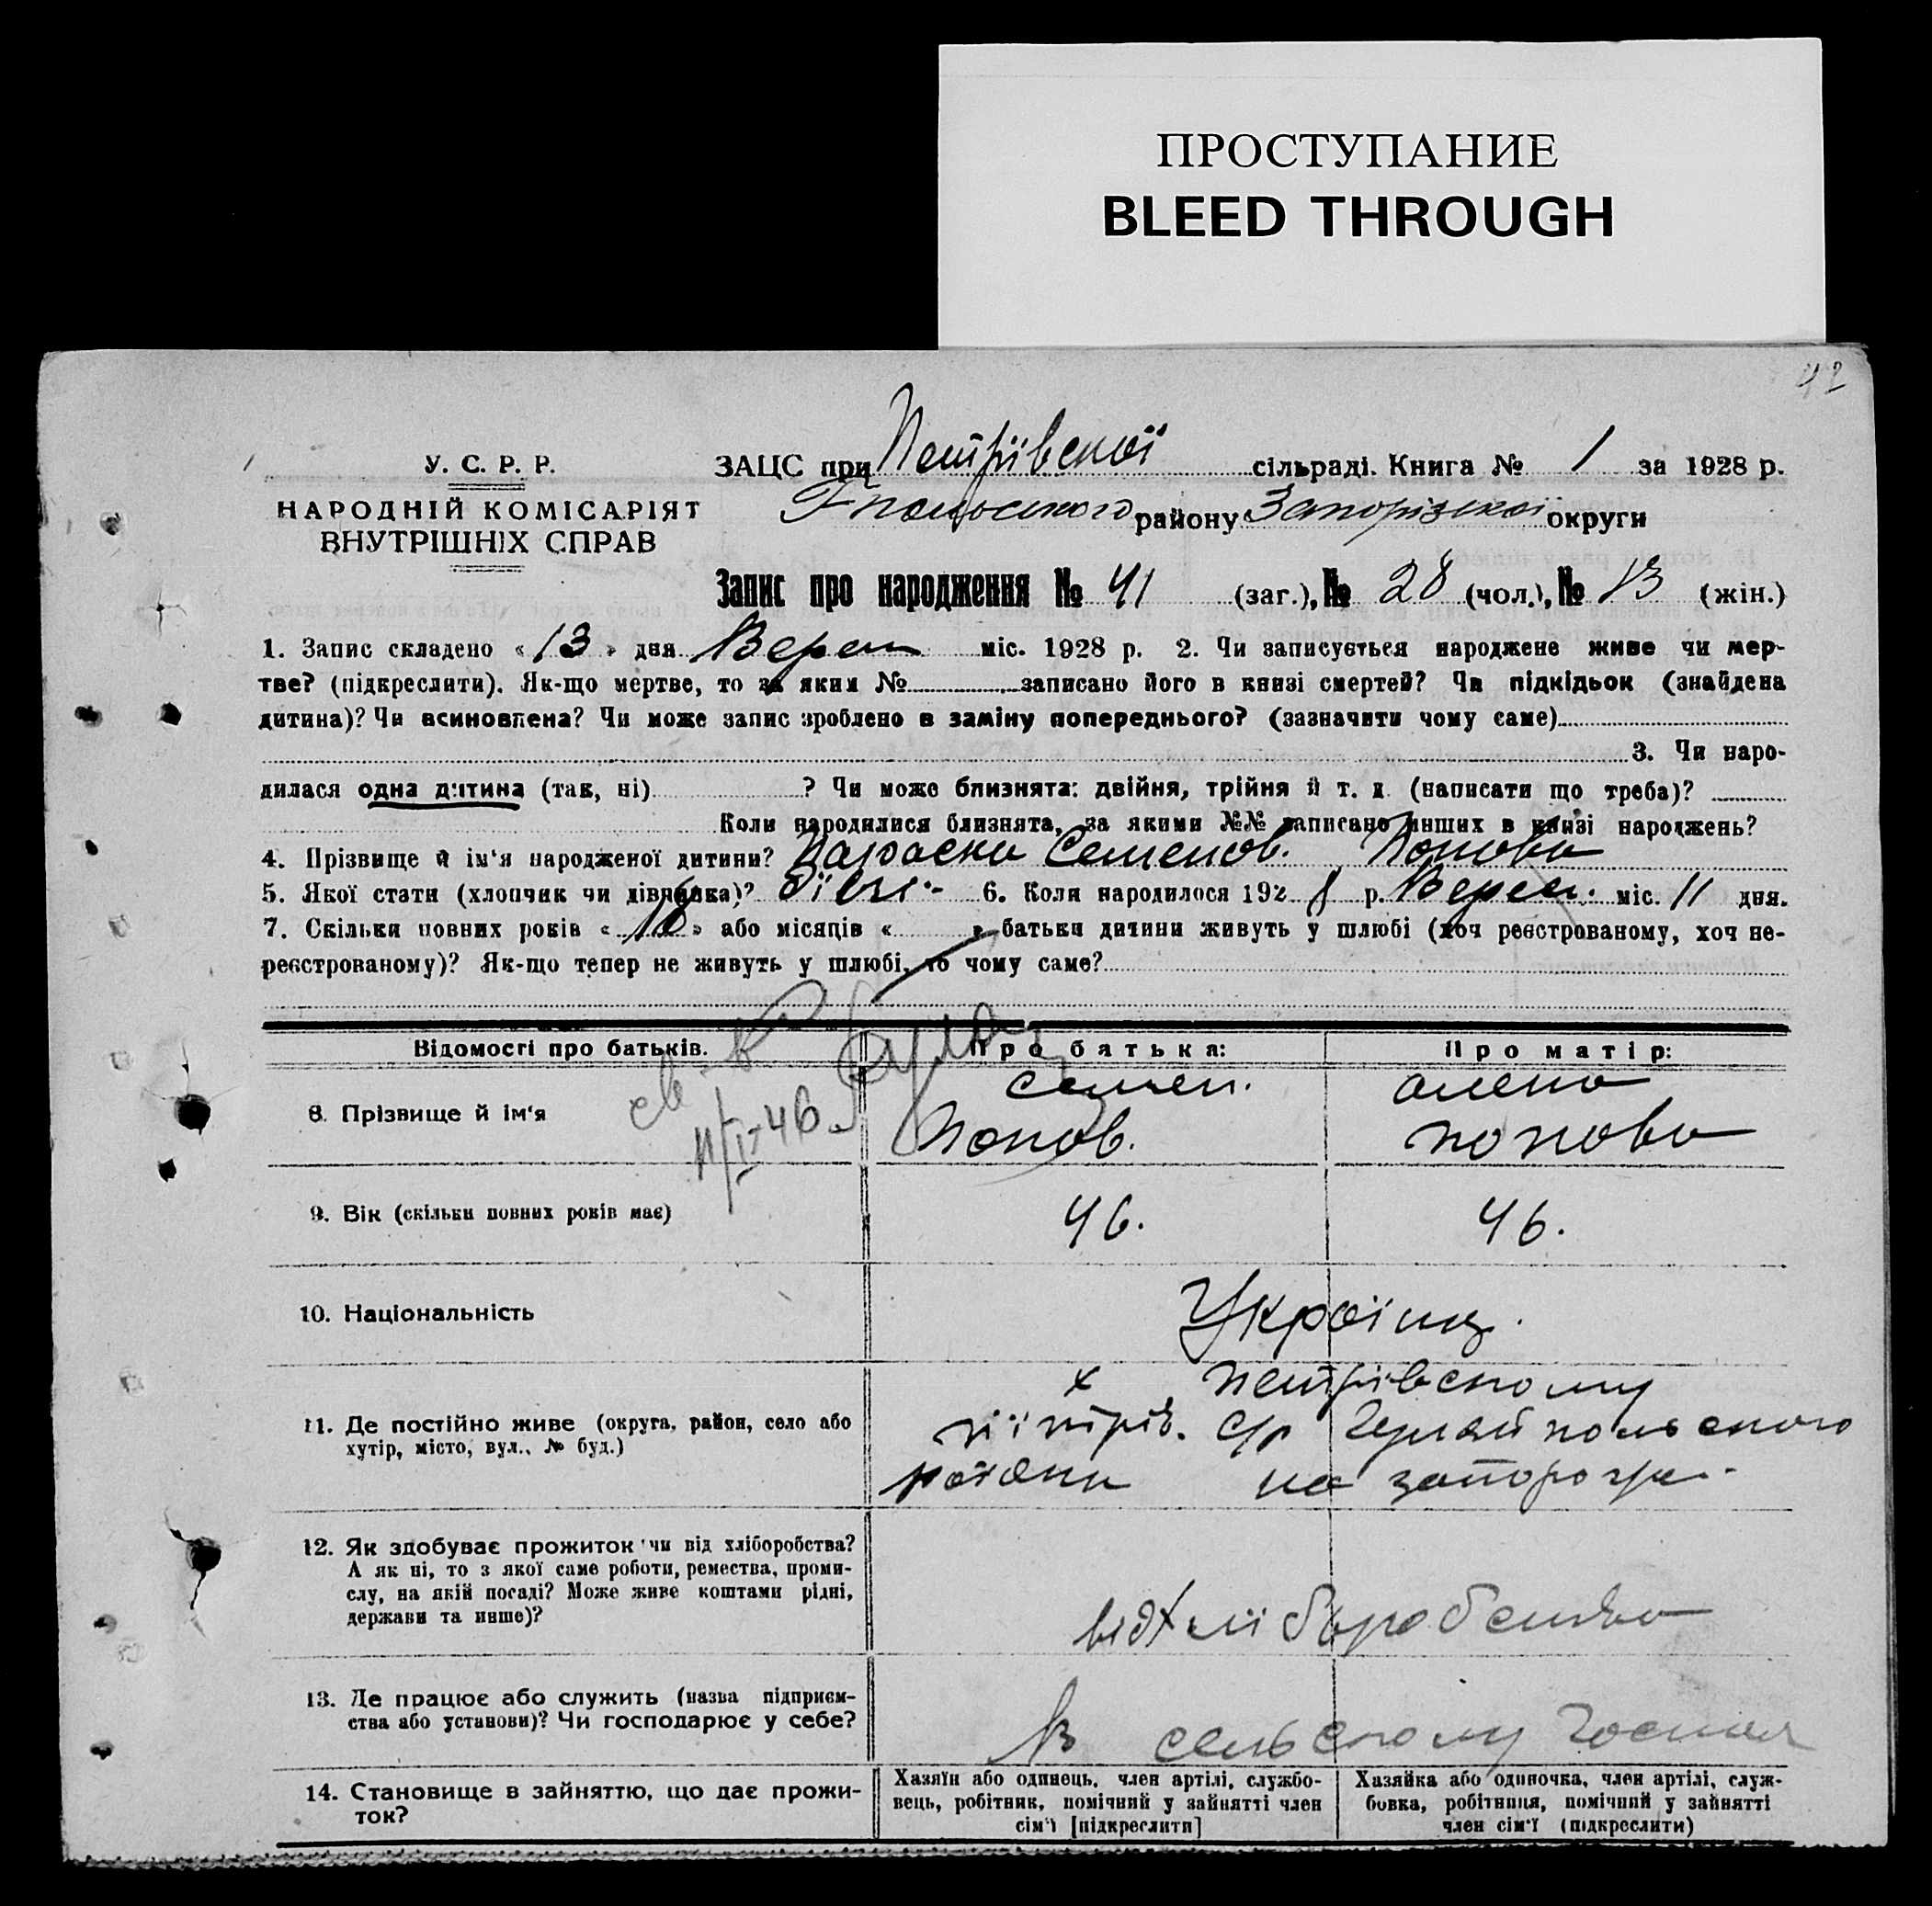 ПРОСТУПАНИЕ
BLEED THROUGH
42
У. С. Р. Р.
НАРОДНІЙ КОМІСАРІЯТ
ВНУТРІШНІХ СПРАВ
ЗАЦС при Петрівської сільраді. Книга № 1 за 1928 р.
району Запорізької округи
Запис про народження № 41 (заг.), № 28 (чол.), № 13 (жін.)
1. Запис складено «13» дня Верес міс. 1928 р. 2. Чи записується народжене живе чи мер-
тве? (підкреслити). Як-що мертве, то за яким № записано його в книзі смертей? Чи підкідьок (знайдена
дитина)? Чи всиновлена? Чи може запис зроблено в заміну попереднього? (зазначити чому саме)
3. Чи наро-
дилася одна дитина (так, ні) ? Чи може близнята: двійня, трійня й т. д. (написати що треба)?
Коли народилися близнята, за якими №№ записано инших в книзі народжень?
4. Прізвище й ім'я народженої дитини? Параска Семенов. Попова
5. Якої стати (хлопчик чи дівчинка)? дівч. 6. Коли народилося 1928 р. Верес. міс. 11 дня.
7. Скільки повних років «18» або місяців « » батьки дитини живуть у шлюбі (хоч реєстрованому, хоч не-
реєстрованому)? Як-що тепер не живуть у шлюбі, то чому саме?
Відомості про батьків.
Про батька:
Про матір:
8. Прізвище й ім'я
Семен.
Попов.
олена
попова
46.
9. Вік (скільки повних років має)
46.
46.
10. Національність
Українц.
11. Де постійно живе (округа, район, село або
хутір, місто, вул., № буд.)
х петрівському
с/р
району на запорожж.
12. Як здобуває прожиток чи від хліборобства?
А як ні, то з якої саме роботи, ремества, проми-
слу, на якій посаді? Може живе коштами рідні,
держави та инше)?
від хліборобства
13. Де працює або служить (назва підприєм-
ства або установи)? Чи господарює у себе?
В сельському господ
14. Становище в зайняттю, що дає прожи-
ток?
Хазяїн або одинець, член артілі, службо-
вець, робітник, помічний у зайнятті член
сім'ї [підкреслити]
Хазяйка або одиночка, член артілі, служ-
бовка, робітниця, помічний у зайнятті
член сім'ї (підкреслити)